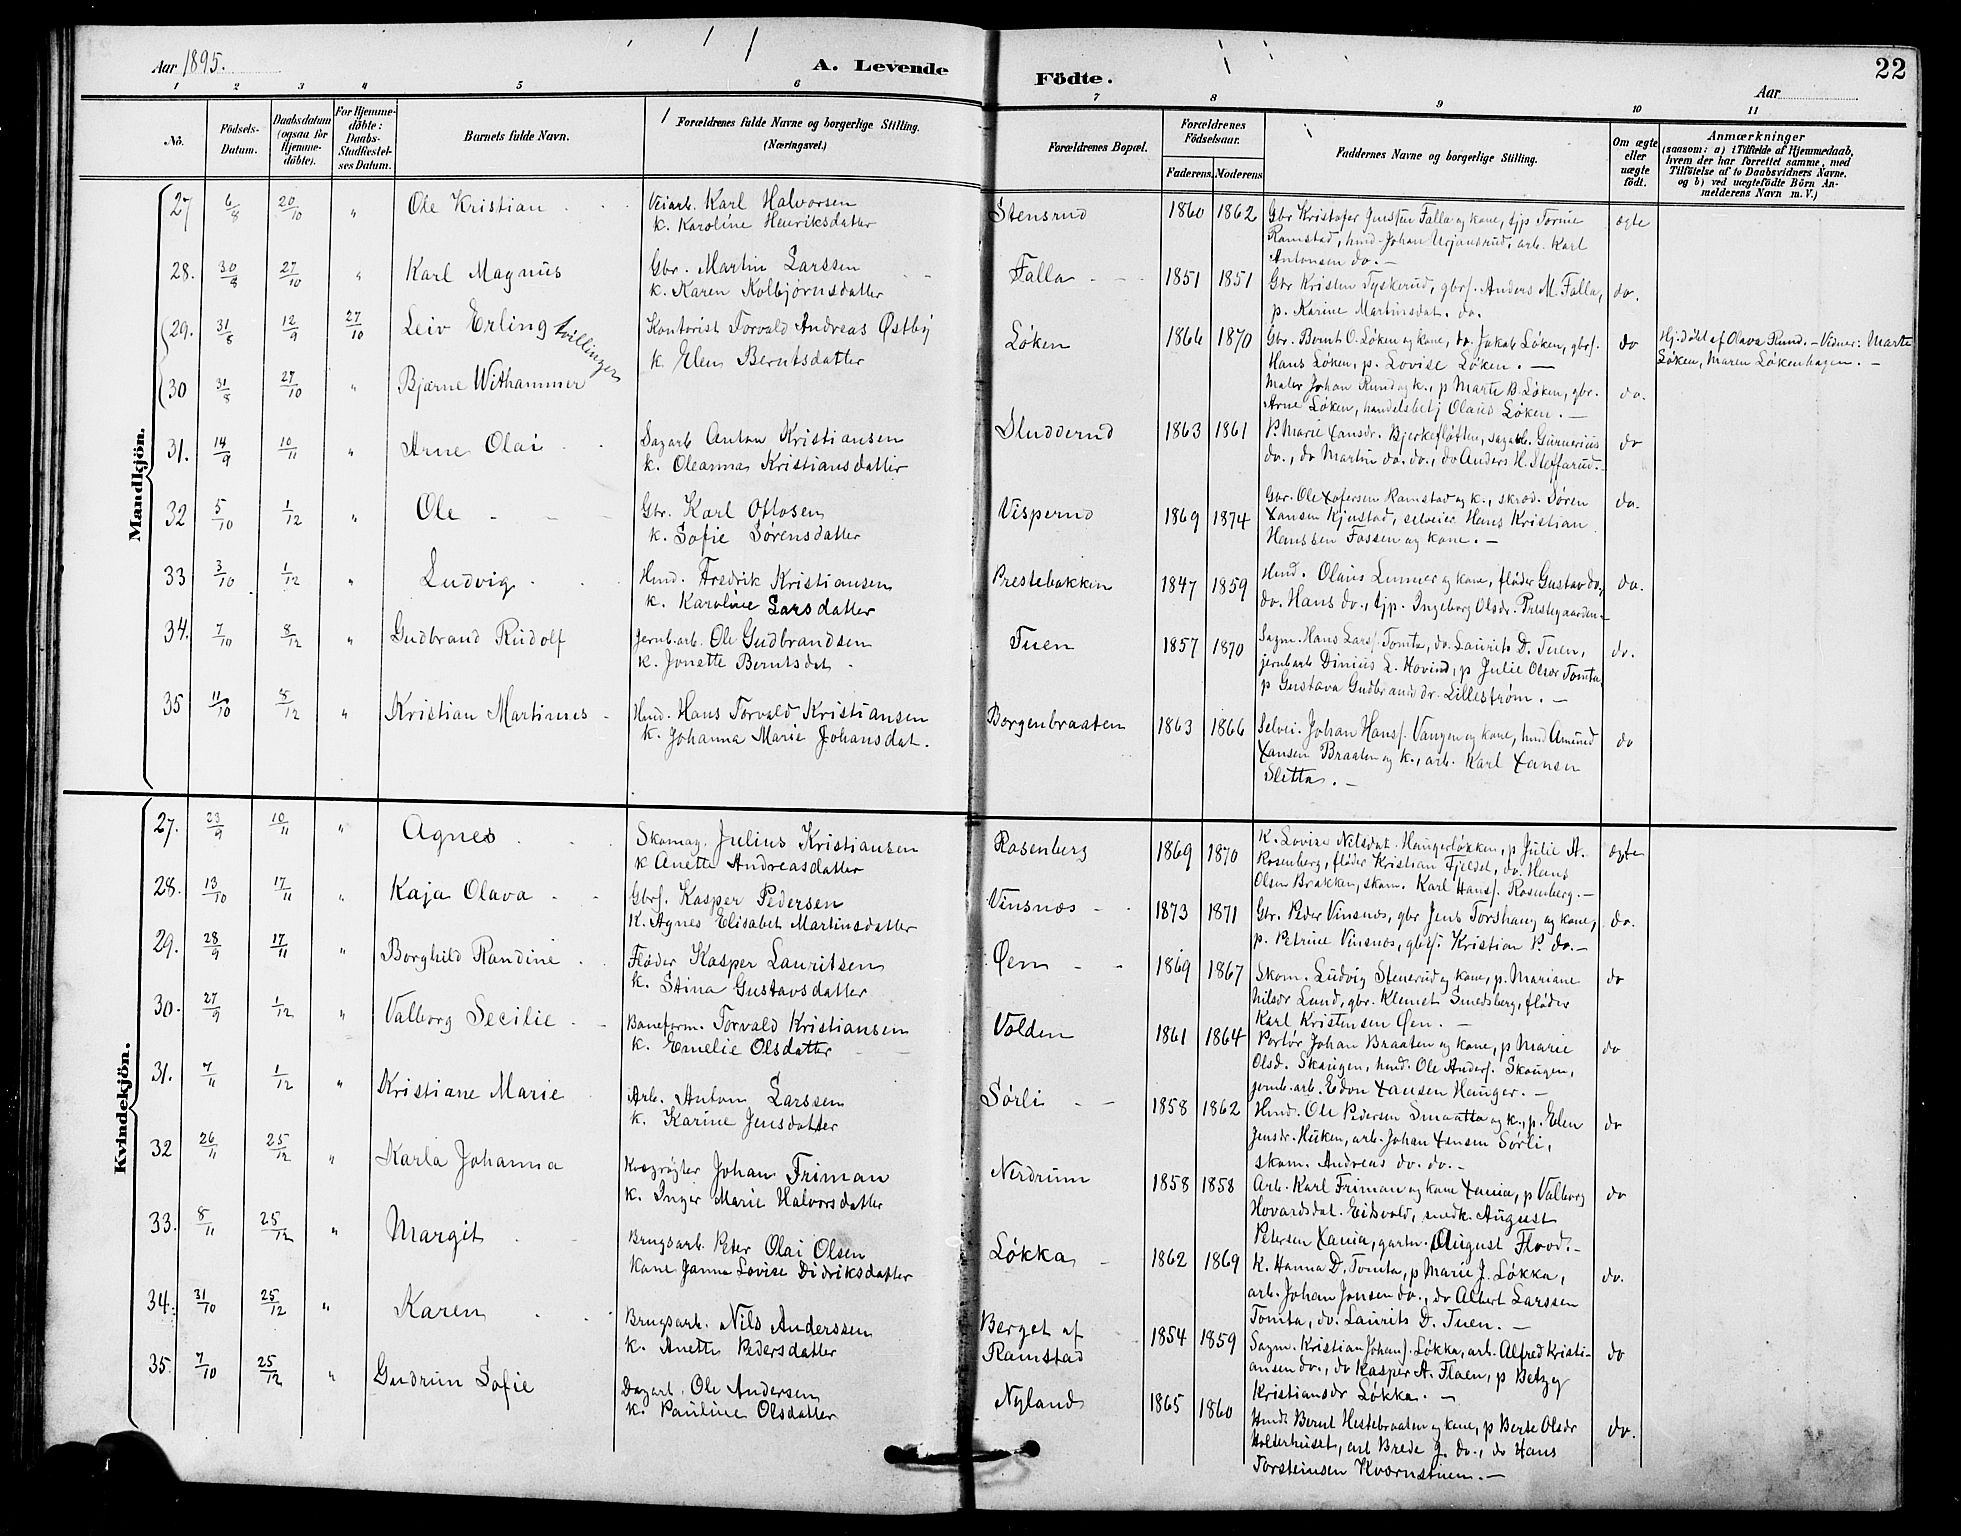 Aar 1895.
A. Levende Födte.
22
Aar
1 2 3 4 5 6 7 8 9 10 11
No.
Födsels-Datum.
Daabsdatum (ogsaa for Hjemme-döbte).
For Hjemme-döbte: Daabs-Stadfæstel-ses Datum.
Barnets fulde Navn.
Forældrenes fulde Navne og borgerlige Stilling. (Næringsvei.)
Forældrenes Bopæl.
Forældrenes Födselsaar.
Faderens. Moderens
Faddernes Navne og borgerlige Stilling.
Om ægte eller uægte födt.
Anmærkninger
(saasom: a) i Tilfælde af Hjemmedaab,
hvem der har forrettet samme, med
Tilföielse af to Daabsvidners Navne.
og b) ved uægtefödte Börn An-
melderens Navn m. V.)
Mandkjön.
27 6/8 20/10 " Ole Kristian Veiarb. Karl Halvorsen
k. Karoline Henriksdatter
Stensrud 1860 1862 Gbr Kristofer Jenssen Falla og kone, tjp Tomine
Ramstad, hmd. Johan Urjansrud, arb. Karl
Antonsen do. —
ægte
28. 30/8 27/10 " Karl Magnus Gbr. Martin Larssen
k. Karen Kolbjørnsdatter
Falla 1851 1851 Gbr Kristen Tyskerud, gbrs. Anders M. Falla,
p. Karine Martinsdat. do.
do.
29. 31/8 12/9 27/10 Leiv Erling tvillinger Kontorist Torvald Andreas Østby
k. Elen Berntsdatter
Løken 1866 1870 Gbr. Bernt O. Løken og kone, do. Jakob Løken, gbrs.
Hans Løken, p. Lovise Løken. —
do Hj.døbt af Olava Rund. – Vidner: Marte
Løken, Maren Løkenhagen. —
30 31/8 27/10 " Bjarne Withammer
Maler Johan Rund og k., p Marte B. Løken, gbr.
Arne Løken, handelsbetj Olaus Løken. —
do.
31. 14/9 10/11 " Arne Olai Sagarb Anton Kristiansen
k. Oleanna Kristiansdatter
Sludderud 1863 1861 P. Marie Xansdr. Bjerkefløtten, sagarb. Gunerius
do., do Martin do. do., do Anders H. Steffarud. –
do
32 5/10 1/12 " Ole Gbr. Karl Ottosen
k. Sofie Sørensdatter
Visperud 1869 1874 Gbr. Ole Xofersen Ramstad og k., skræd. Søren
Xansen Kjustad, selveier Hans Kristian
Hanssen Fossen og kone. —
do.
33 3/10 1/12 " Ludvig Hmd. Fredrik Kristiansen
k. Karoline Larsdatter
Prestebakken 1847 1859 Hmd. Olaus Lunner og kone, fløder Gustav do.,
do. Hans do., tjp. Ingeborg Olsdr. Prestegaarden –
do.
34. 7/10 8/12 " Gudbrand Rudolf Jernb.arb. Ole Gudbrandsen
k. Jonette Berntsdat.
Tuen 1857 1870 Sagm. Hans Lars. Tomta, do. Laurits D. Tuen,
jernbarb Dinius L. Hovind, p Julie Olsdr Tomta,
p Gustava Gudbrandsdr. Lillestrøm. —
do.
35 11/10 8/12 " Kristian Martinius Hmd. Hans Torvald Kristiansen
k. Johanna Marie Johansdat.
Borgenbraaten 1863 1866 Selvei. Johan Hans. Vangen og kone, hmd Amund
Xansen Braaten og k., arb. Karl Xansen
Sletta. —
do
Kvindekjön.
27. 23/9 10/11 " Agnes Skomag. Julius Kristiansen
k Anette Andreasdatter
Rosenberg 1869 1870 K. Lovise Nilsdat. Haugerløkken, p Julie A.
Rosenberg, fløder Kristian Fjeldet, do. Hans
Olsen Brakken, skom. Karl Hans. Rosenberg. –
ægte
28. 13/10 17/11 " Kaja Olava Gbrs. Kasper Pedersen
K. Agnes Elisabet Martinsdatter
Vinsnes 1873 1871 Gbr. Peder Vinsnes, gbr Jens Torshaug og kone,
p. Petrine Vinsnes, gbrs. Kristian P. do. –
do.
29. 28/9 17/11 " Borghild Randine Fløder Kasper Lauritsen
k. Stina Gustavsdatter
Øen 1869 1867 Skom. Ludvig Stenerud og kone, p. Mariane
Nilsdr Lund, gbr. Klemet Smedsberg, fløder
Karl Kristensen Øen. —
do
30. 27/9 1/12 " Valborg Secilie Baneform. Torvald Kristiansen
k. Emelie Olsdatter
Volden 1861 1864 Portør Johan Braaten og kone, p Marie
Olsd. Skaugen, hmd. Ole Anders. Skaugen,
jernb.arb. Edon Xansen Hauger. —
do
31. 7/11 1/12 " Kristiane Marie Arb. Anton Larssen
k. Karine Jensdatter
Sørli 1858 1862 Hmd. Ole Pedersen Smaatta og k., p. Elen
Jensdr. Huken, arb. Johan Xansen Sørli,
skom. Andreas do. do. –
do
32 26/11 25/12 " Karla Johanna Kvægrøgter Johan Friman
k. Inger Marie Halvorsdatter
Nerdrum 1858 1858 Arb. Karl Friman og kone Xania, p Valborg
Hovardsdat. Eidsvold, smedk. August
Petersen Xania, gartn. August Flood. –
do
33. 8/11 25/12 " Margit Brugsarb. Peter Olai Olsen
Kone Janna Lovise Didriksdatter
Løkka 1862 1869 K. Hanna D. Tomta, p Marie J. Løkka,
arb. Johan Jonsen do., do Albert Larssen
Tomta, do. Laurits D. Tuen. —
do.
34. 31/10 25/12 " Karen Brugsarb. Nils Anderssen
k. Anette Pedersdatter
Berget af
Ramstad 1854 1859 Sagm. Kristian Johans. Løkka, arb. Alfred Kristi-
ansen do., do Kasper A. Flaen, p Betzy
Kristiansdr Løkka. —
do
35. 7/10 25/12 " Gudrun Sofie Dagarb. Ole Andersen
k. Pauline Olsdatter
Nyland 1865 1860 Hmd. Bernt Hestebraaten og kone, p Berte Olsdr
Holterhuset, arb Brede G. do., do Hans
Torsteinsen Kværnstuen. —
do.